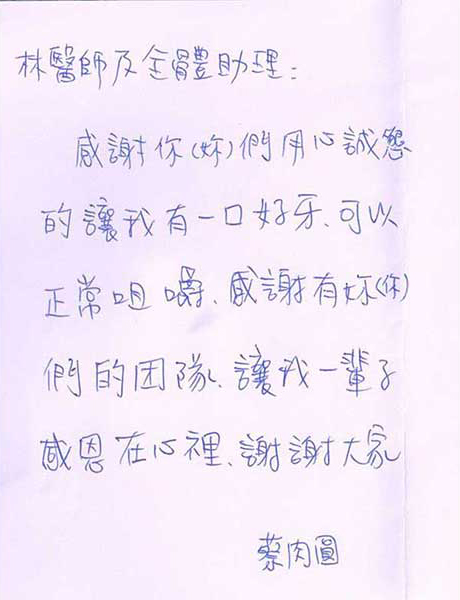 林醫師及全體助理：
感謝你(妳)們用心誠懇
的讓我有一口好牙、可以
正常咀嚼、感謝有妳(你)
們的团隊、讓我一輩子
感恩在心裡、謝謝大家
蔡肉圓